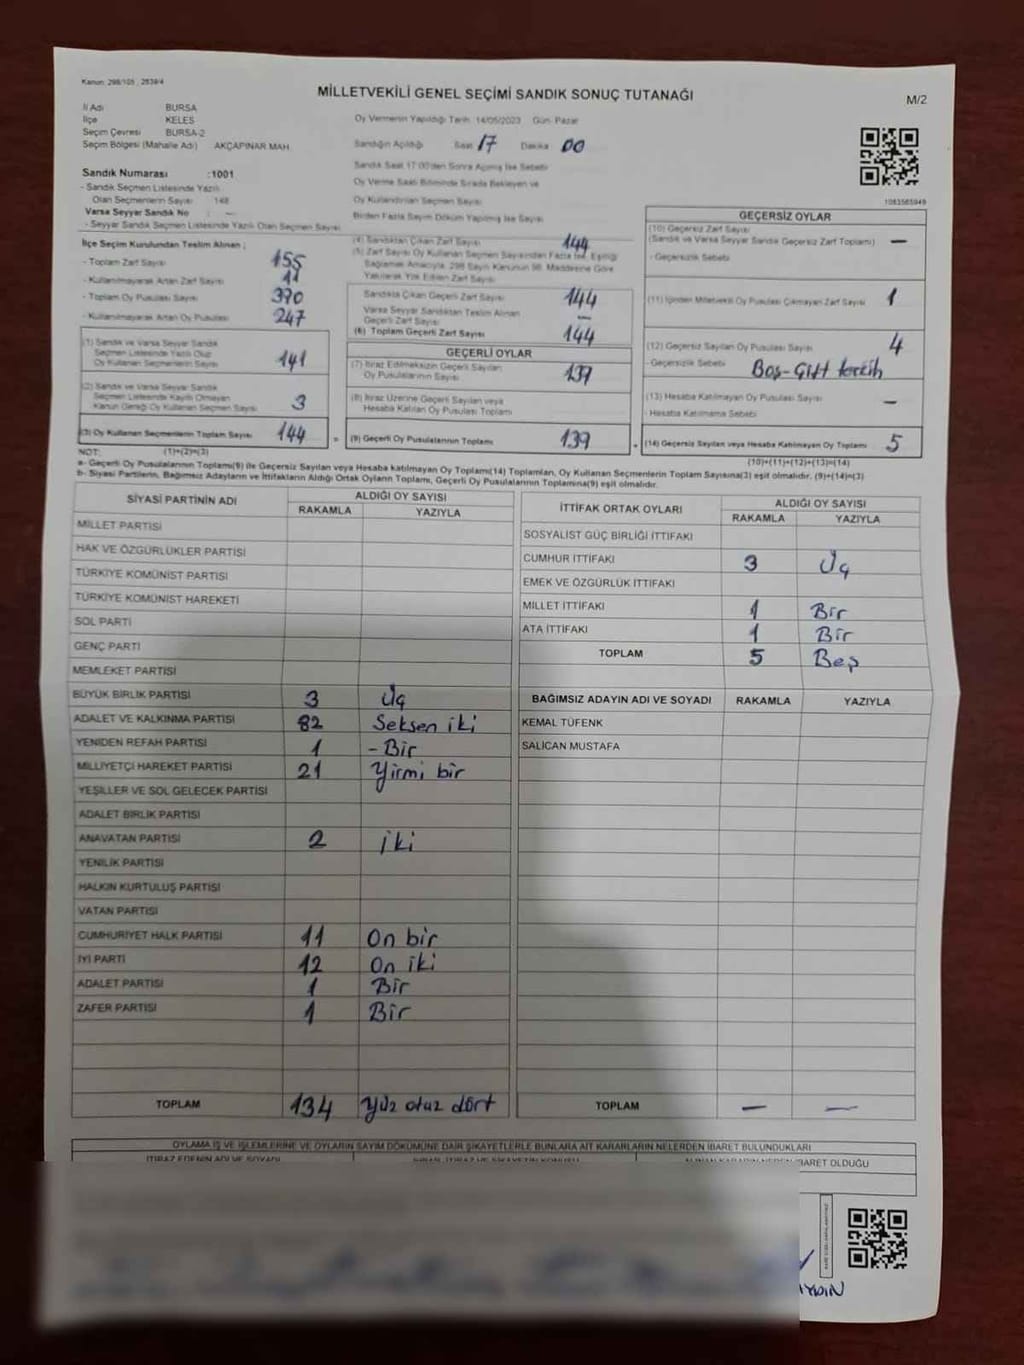 Kanun: 298/105 , 2839/4
MİLLETVEKİLİ GENEL SEÇİMİ SANDIK SONUÇ TUTANAĞI
M/2
İl Adı BURSA
İlçe KELES
Seçim Çevresi BURSA-2
Seçim Bölgesi (Mahalle Adı) AKÇAPINAR MAH.
Oy Vermenin Yapıldığı Tarih 14/05/2023 Gün: Pazar
Sandığın Açıldığı Saat 17 Dakika 00
Sandık Saat 17:00'den Sonra Açılmış İse Sebebi
Oy Verme Saati Bitiminde Sırada Bekleyen ve
Oy Kullandırılan Seçmen Sayısı
Birden Fazla Sayım Döküm Yapılmış İse Sayısı
1063565949
Sandık Numarası :1001
- Sandık Seçmen Listesinde Yazılı
Olan Seçmenlerin Sayısı 148
Varsa Seyyar Sandık No : —
- Seyyar Sandık Seçmen Listesinde Yazılı Olan Seçmen Sayısı
İlçe Seçim Kurulundan Teslim Alınan ;
- Toplam Zarf Sayısı 155
- Kullanılmayarak Artan Zarf Sayısı 11
- Toplam Oy Pusulası Sayısı 390
- Kullanılmayarak Artan Oy Pusulası 247
(1) Sandık ve Varsa Seyyar Sandık
Seçmen Listesinde Yazılı Olup
Oy Kullanan Seçmenlerin Sayısı 141
(2) Sandık ve Varsa Seyyar Sandık
Seçmen Listesinde Kayıtlı Olmayan
Kanun Gereği Oy Kullanan Seçmen Sayısı 3
(3) Oy Kullanan Seçmenlerin Toplam Sayısı 144
(4) Sandıktan Çıkan Zarf Sayısı 144
(5) Zarf Sayısı Oy Kullanan Seçmen Sayısından Fazla İse, Eşitliği
Sağlamak Amacıyla, 298 Sayılı Kanunun 98. Maddesine Göre
Yakılarak Yok Edilen Zarf Sayısı
Sandıkta Çıkan Geçerli Zarf Sayısı 144
Varsa Seyyar Sandıktan Teslim Alınan
Geçerli Zarf Sayısı —
(6) Toplam Geçerli Zarf Sayısı 144
GEÇERLİ OYLAR
(7) İtiraz Edilmeksizin Geçerli Sayılan
Oy Pusulalarının Sayısı 139
(8) İtiraz Üzerine Geçerli Sayılan veya
Hesaba Katılan Oy Pusulası Toplamı
= (9) Geçerli Oy Pusulalarının Toplamı 139
GEÇERSİZ OYLAR
(10) Geçersiz Zarf Sayısı
(Sandık ve Varsa Seyyar Sandık Geçersiz Zarf Toplamı) —
- Geçersizlik Sebebi
(11) İçinden Milletvekili Oy Pusulası Çıkmayan Zarf Sayısı 1
(12) Geçersiz Sayılan Oy Pusulası Sayısı 4
- Geçersizlik Sebebi Boş-Çift tercih
(13) Hesaba Katılmayan Oy Pusulası Sayısı —
- Hesaba Katılmama Sebebi
+ (14) Geçersiz Sayılan veya Hesaba Katılmayan Oy Toplamı 5
NOT: (1)+(2)=(3)
(10)+(11)+(12)+(13)=(14)
a- Geçerli Oy Pusulalarının Toplamı(9) ile Geçersiz Sayılan veya Hesaba katılmayan Oy Toplamı(14) Toplamları, Oy Kullanan Seçmenlerin Toplam Sayısına(3) eşit olmalıdır. (9)+(14)=(3)
b- Siyasi Partilerin, Bağımsız Adayların ve İttifakların Aldığı Ortak Oyların Toplamı, Geçerli Oy Pusulalarının Toplamına(9) eşit olmalıdır.
SİYASİ PARTİNİN ADI ALDIĞI OY SAYISI
RAKAMLA YAZIYLA
MİLLET PARTİSİ
HAK VE ÖZGÜRLÜKLER PARTİSİ
TÜRKİYE KOMÜNİST PARTİSİ
TÜRKİYE KOMÜNİST HAREKETİ
SOL PARTİ
GENÇ PARTİ
MEMLEKET PARTİSİ
BÜYÜK BİRLİK PARTİSİ 3 Üç
ADALET VE KALKINMA PARTİSİ 82 Seksen iki
YENİDEN REFAH PARTİSİ 1 - Bir
MİLLİYETÇİ HAREKET PARTİSİ 21 Yirmi bir
YEŞİLLER VE SOL GELECEK PARTİSİ
ADALET BİRLİK PARTİSİ
ANAVATAN PARTİSİ 2 iki
YENİLİK PARTİSİ
HALKIN KURTULUŞ PARTİSİ
VATAN PARTİSİ
CUMHURİYET HALK PARTİSİ 11 On bir
İYİ PARTİ 12 On iki
ADALET PARTİSİ 1 Bir
ZAFER PARTİSİ 1 Bir
TOPLAM 134 Yüz otuz dört
İTTİFAK ORTAK OYLARI ALDIĞI OY SAYISI
RAKAMLA YAZIYLA
SOSYALİST GÜÇ BİRLİĞİ İTTİFAKI
CUMHUR İTTİFAKI 3 Üç
EMEK VE ÖZGÜRLÜK İTTİFAKI
MİLLET İTTİFAKI 1 Bir
ATA İTTİFAKI 1 Bir
TOPLAM 5 Beş
BAĞIMSIZ ADAYIN ADI VE SOYADI RAKAMLA YAZIYLA
KEMAL TÜFENK
SALİCAN MUSTAFA
TOPLAM — —
OYLAMA İŞ VE İŞLEMLERİNE VE OYLARIN SAYIM DÖKÜMÜNE DAİR ŞİKAYETLERLE BUNLARA AİT KARARLARIN NELERDEN İBARET BULUNDUKLARI
İTİRAZ EDENİN ADI VE SOYADI
İBARET OLDUĞU